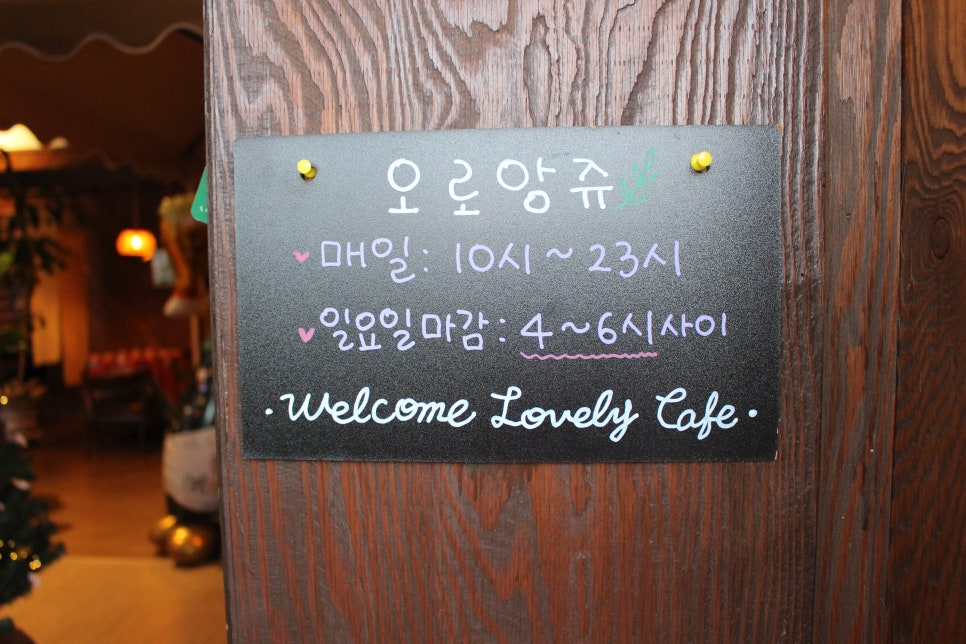 오로앙쥬
♥ 매일: 10시 ~ 23시
♥ 일요일마감: 4~6시사이
·Welcome Lovely Cafe·